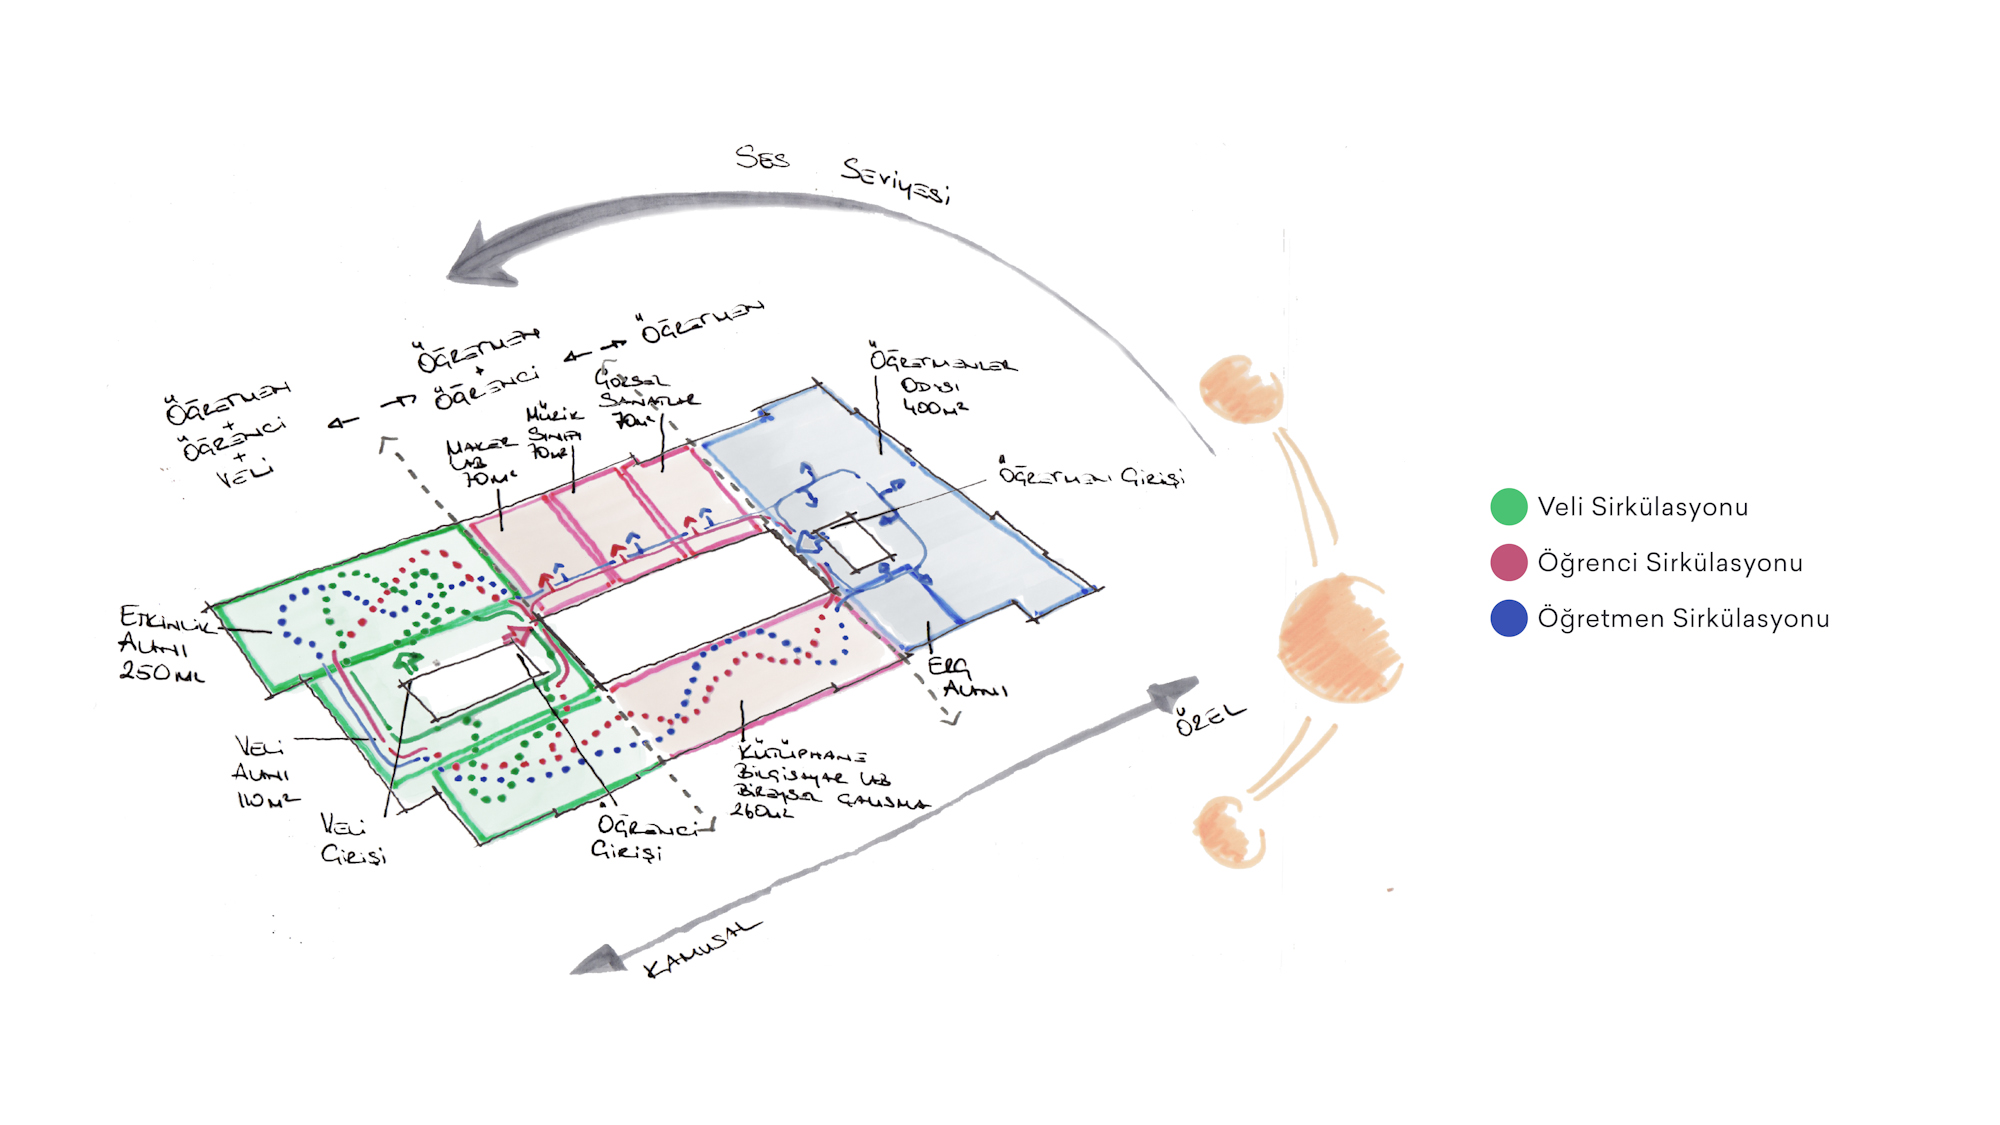 SES SEViYESi
ÖĞRETMEN
+
ÖĞRENCi
+
VELi
ÖĞRETMEN
+
ÖĞRENCi
ÖĞRETMEN
MAKER
LAB
70m²
MÜZiK
SINIFI
70m²
GÖRSEL
SANATLAR
70m²
ÖĞRETMENLER
ODASI
400m²
ÖĞRETMEN GiRiŞi
ETKiNLiK
ALANI
250m²
VELi
ALANI
110m²
VELi
GiRiŞi
ÖĞRENCi
GiRiŞi
KÜTÜPHANE
BiLGiSAYAR LAB
BiREYSEL ÇALIŞMA
260m²
ERG
ALANI
ÖZEL
KAMUSAL
Veli Sirkülasyonu
Öğrenci Sirkülasyonu
Öğretmen Sirkülasyonu